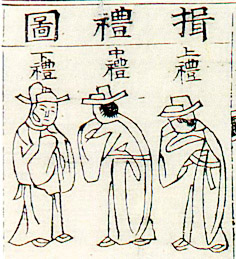 揖禮圖
上禮
中禮
下禮